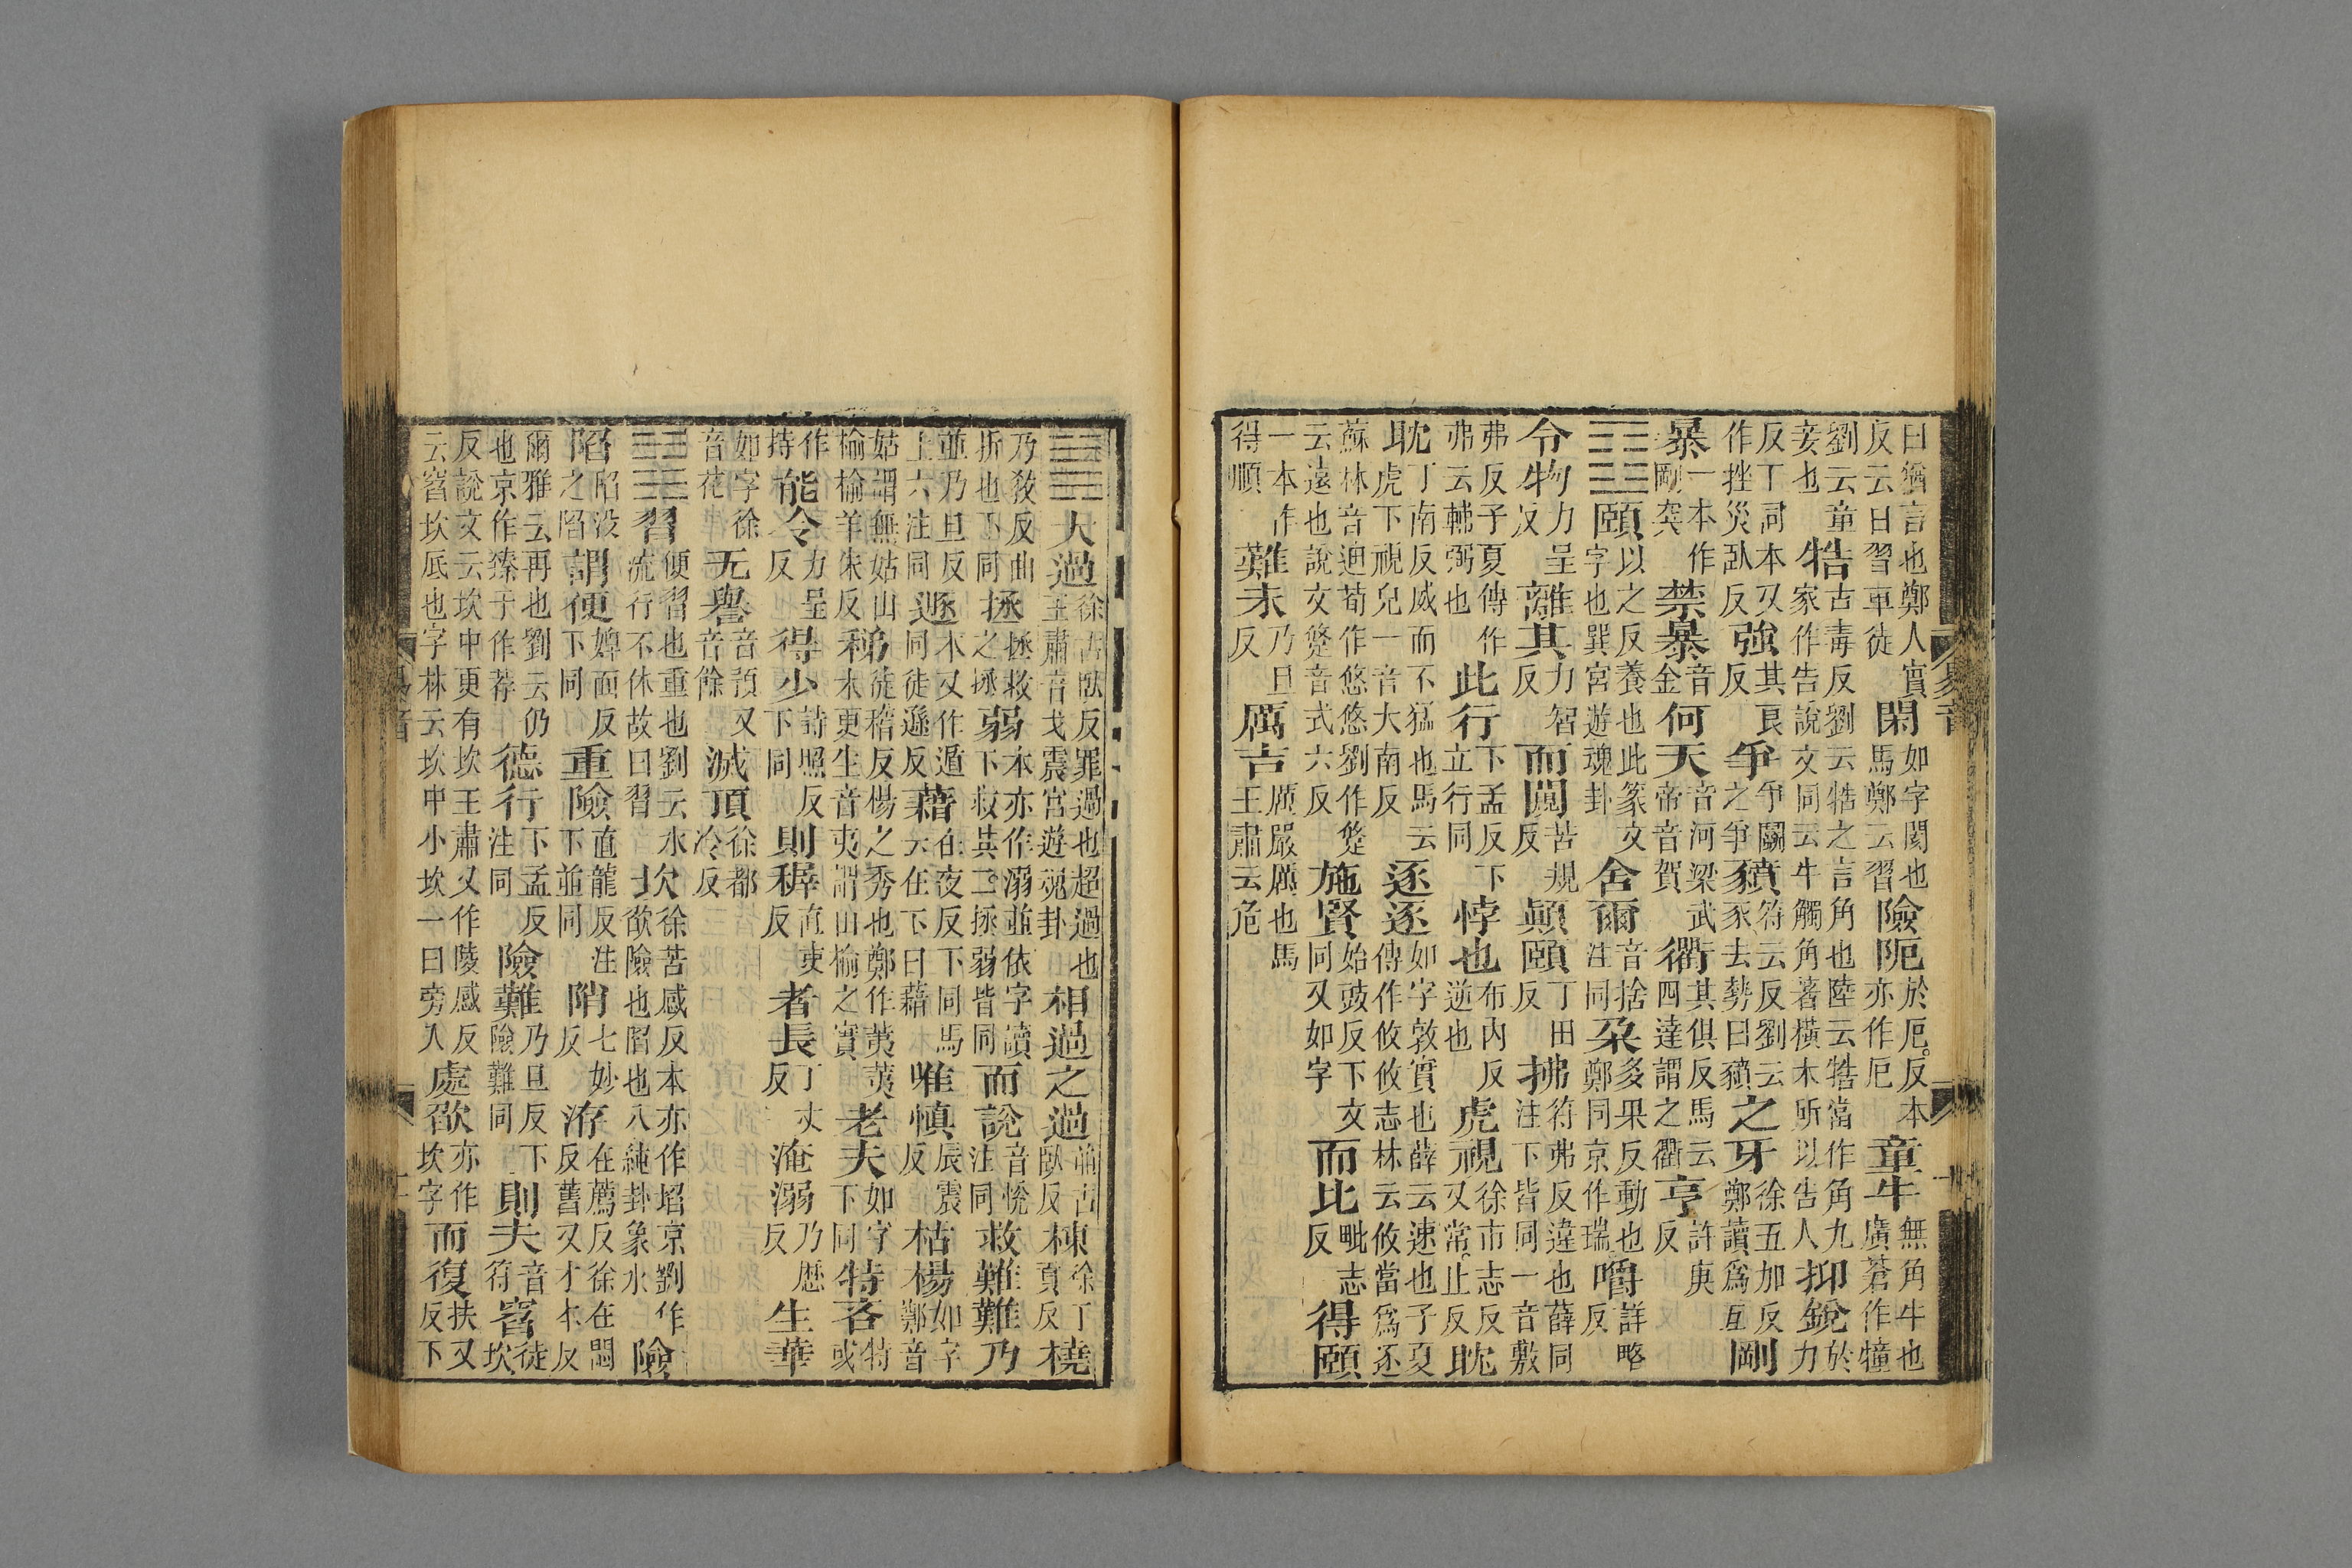 曰猶言也鄭人實反云日習車徒閑如字閡也馬鄭云習險阨於厄反本亦作厄童牛無角牛也廣蒼作犝
劉云童妾也牿古毒反劉云牿之言角也陸云牿當作角九家作告說文同云牛觸角著橫木所以告人抑銳於力
反丁同本又作挫災臥反強其良反爭爭鬭之爭豶符云反劉云豕去勢曰豶之牙徐五加反鄭讀爲互剛
暴一本作剛突禁暴音金何天音河梁武帝音賀衢其俱反馬云四達謂之衢亨許庚反
䷚頤以之反養也此篆文字也巽宮遊魂卦舍爾音捨注同朶多果反動也鄭同京作瑞嚼詳略反
令物力呈反離其力智反而闚苦規反顛頤丁田反拂符弗反違也薛同注下皆同一音敷
弗反子夏傳作弗云輔弼也此行下孟反下立行同悖也布內反逝也虎視徐市志反又常止反耽
耽丁南反威而不猛也馬云虎下視皃一音大南反逐逐如字敦實也薛云速也子夏傳作攸攸志林云攸當爲逐
蘇林音迪荀作悠悠劉作㱊云遠也說文㱊音式六反施賢始豉反下文同又如字而比毗志反得頤
一本作得順難未乃旦反厲吉厲嚴厲也馬王肅云危
易音
十
䷛大過徐古臥反罪過也超過也王肅音戈震宮遊魂卦相過之過並古臥反棟徐丁貢反橈
乃敎反曲折也下同拯拯救之拯弱本亦作溺並依字讀下救其二拯弱皆同而說音悅注同救難難乃
並乃旦反上六注同遯本又作遁同徒遜反藉在夜反下同馬云在下曰藉唯慎辰震反枯楊如字鄭音
姑謂無姑山榆榆羊朱反稊徒稽反楊之秀也鄭作荑荑木更生音夷謂山榆之實老夫如字下同特吝特或
作持能令力呈反得少詩照反下同則稺直吏反者長丁丈反淹溺乃歷反生華
如字徐音花无譽音預又音餘滅頂徐都冷反
䷜習便習也重也劉云水流行不休故曰習坎徐苦感反本亦作埳京劉作欿險也陷也八純卦象水險
陷陷没之陷謂便婢面反下同重險直龍反注下並同陗七妙反洊在薦反徐在悶反舊又才本反
爾雅云再也劉云仍也京作臻于作荐德行下孟反注同險難乃旦反下險難同則夫音符窞徒坎
反說文云坎中更有坎王肅又作陵感反云窞坎底也字林云坎中小坎一曰旁入處欿亦作坎字而復扶又反下